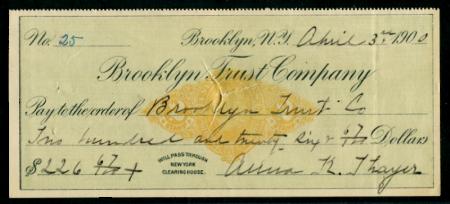 No. 25 Brooklyn, N.Y. April 3rd 1900
Brooklyn Trust Company
Pay to the order of Brooklyn Trust Co
Two hundred and twenty six & 67/100 Dollars
$226 67/100
WILL PASS THROUGH
NEW YORK
CLEARING HOUSE.
Anna K. Thayer